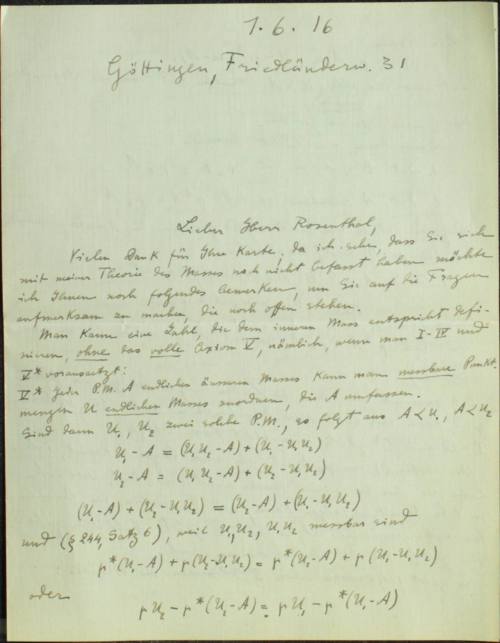 1.6.16
Göttingen, Friedländerw. 31
Lieber Herr Rosenthal,
Vielen Dank für Ihre Karte; da ich sehe, dass Sie sich
mit meiner Theorie des Masses noch nicht befasst haben möchte
ich Ihnen noch folgendes bemerken, um Sie auf die Fragen
aufmerksam zu machen, die noch offen stehen.
Man kann eine Zahl, die dem inneren Mass entspricht defi-
nieren, ohne das volle Axiom V, nämlich, wenn man I-IV und
V* voraussetzt:
V* Jeder P.M. A endlichen äusseren Masses kann man messbare Punkt-
mengen U endlichen Masses zuordnen, die A umfassen.
Sind dann U₁, U₂ zwei solche P.M., so folgt aus A<U₁, A<U₂
U₁-A = (U₁U₂-A)+(U₁-U₁U₂)
U₂-A = (U₁U₂-A)+(U₂-U₁U₂)
(U₁-A)+(U₂-U₁U₂) = (U₂-A)+(U₁-U₁U₂)
und (§ 244, Satz 6), weil U₁, U₂, U₁U₂ messbar sind
μ*(U₁-A)+μ(U₂-U₁U₂) = μ*(U₂-A)+μ(U₁-U₁U₂)
oder
μU₂-μ*(U₂-A) = μU₁-μ*(U₁-A)